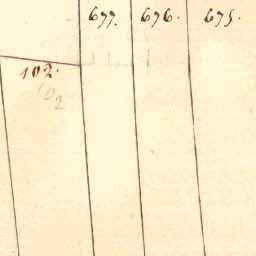 677. 676. 675.
102.
102